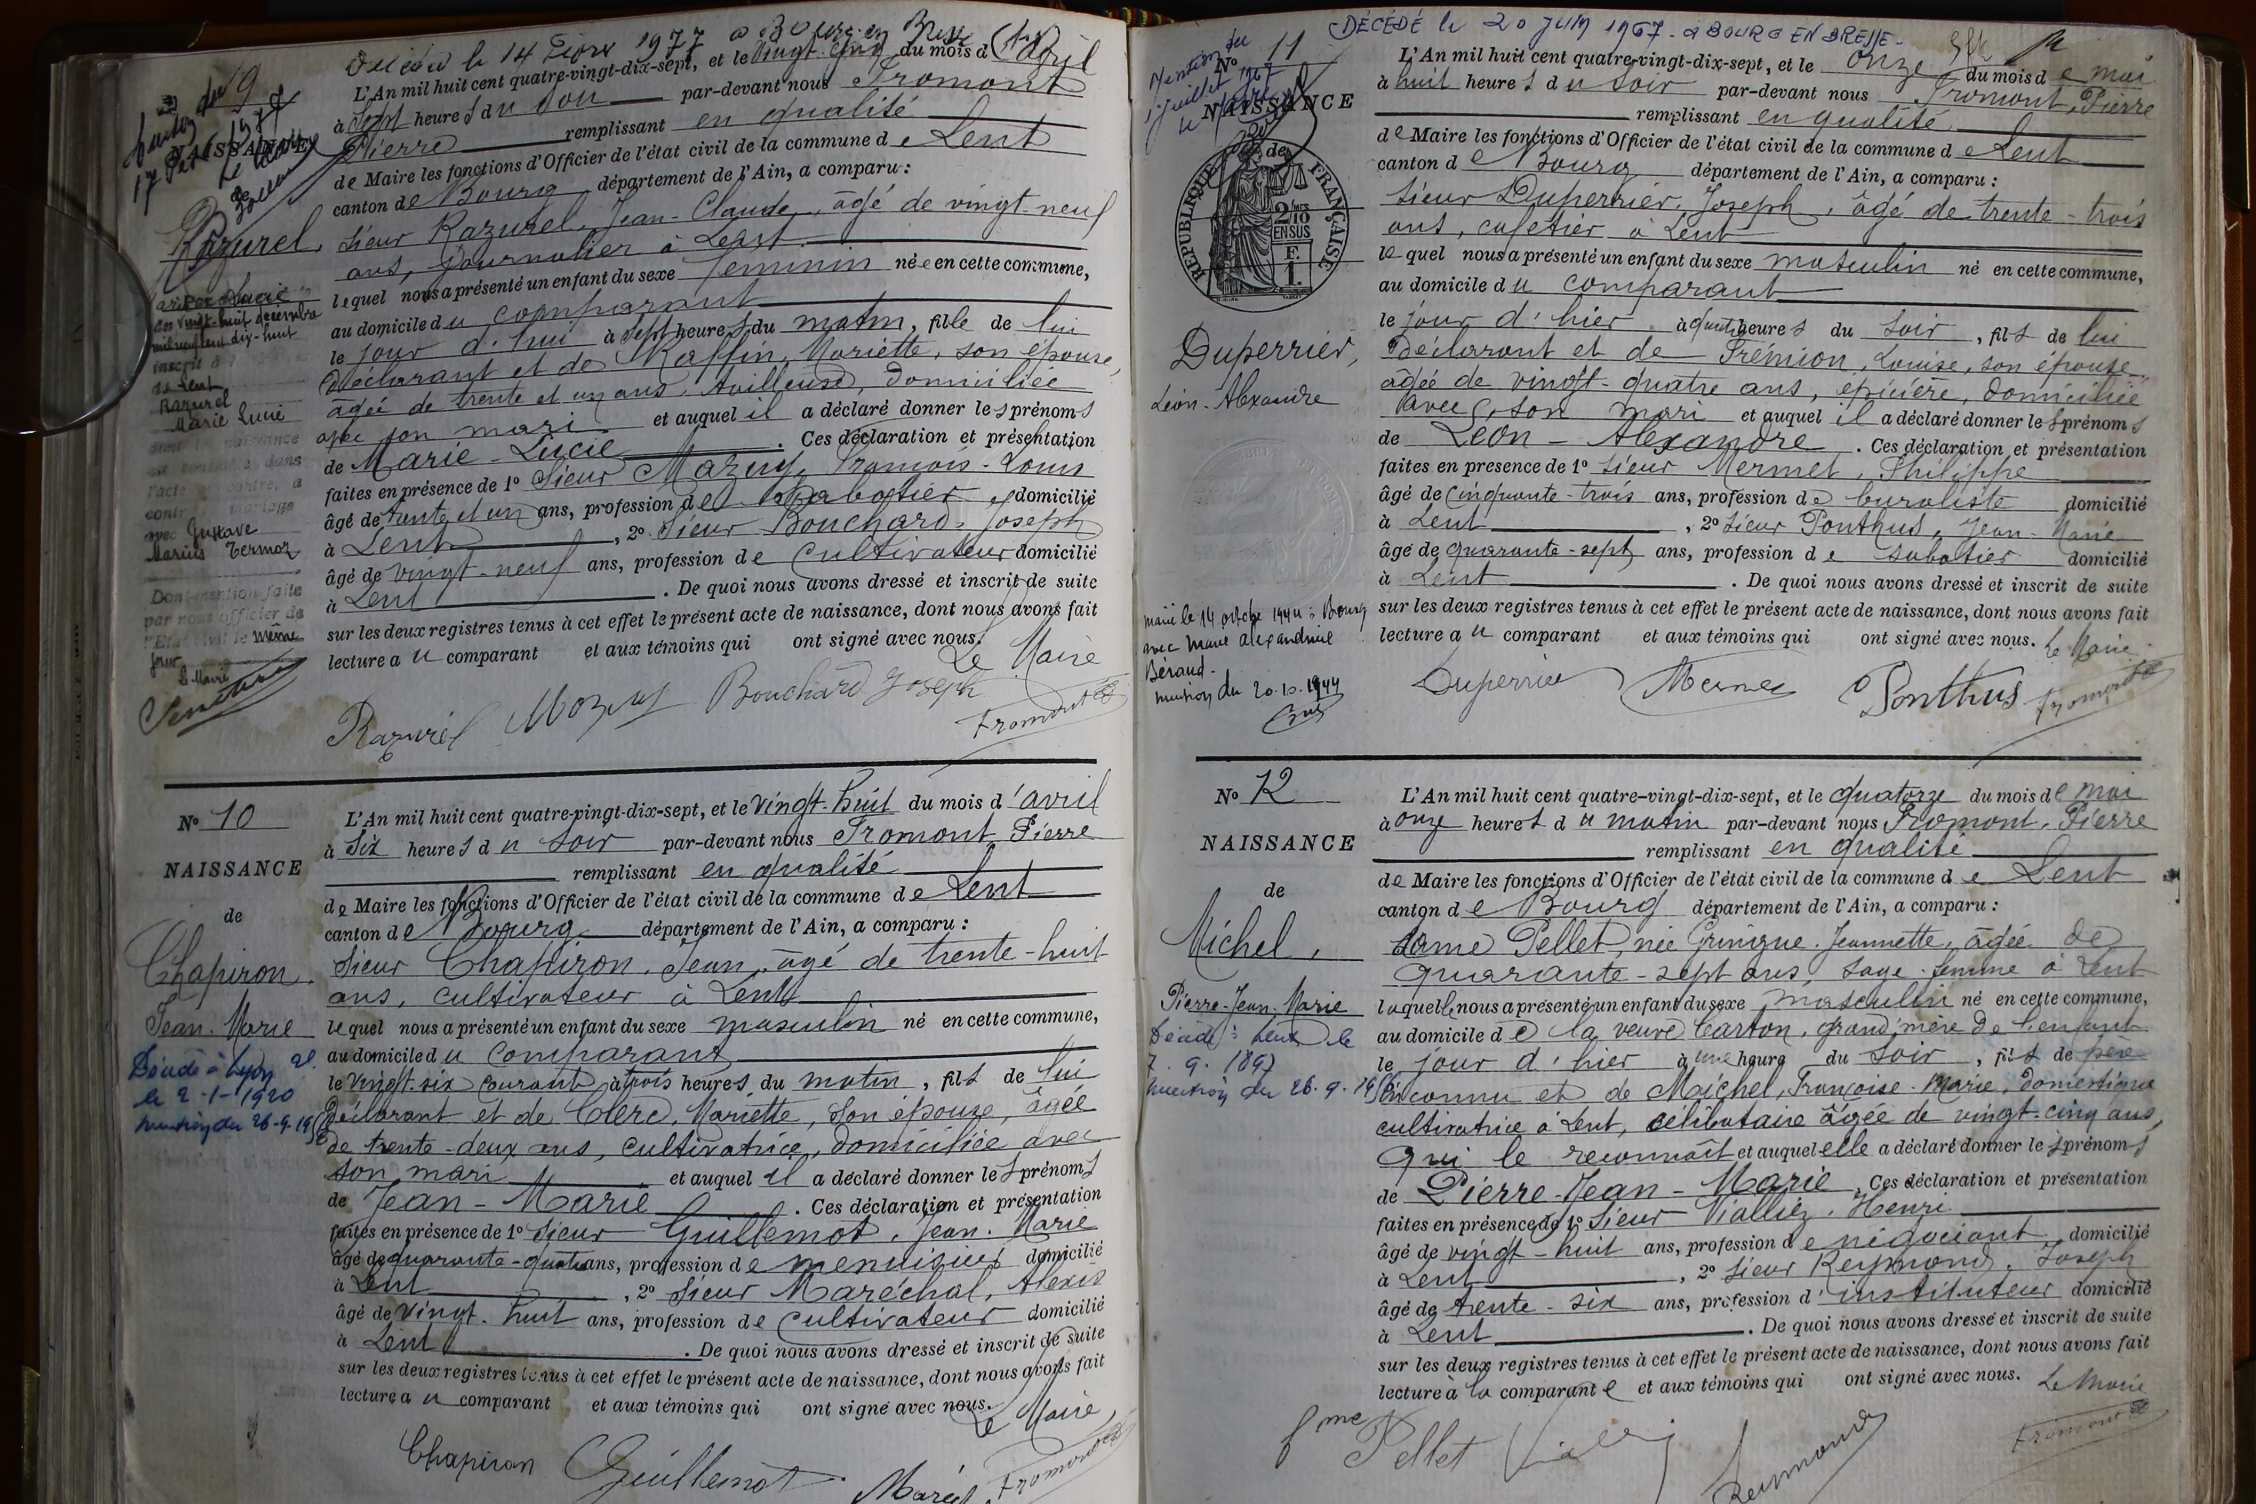 Décédée le 14 1977 à Bourg en Bresse
9
NAISSANCE
de
Razurel,
Marie Lucie
L'An mil huit cent quatre-vingt-dix-sept, et le vingt-cinq du mois d'avril
à sept heures du soir par-devant nous Fromont
Pierre remplissant en qualité
de Maire les fonctions d'Officier de l'état civil de la commune de Lent
canton de Bourg département de l'Ain, a comparu :
sieur Razurel, Jean-Claude, âgé de vingt-neuf
ans, journalier à Lent
lequel nous a présenté un enfant du sexe féminin née en cette commune,
au domicile du comparant
le jour d'hui à sept heures du matin, fille de lui
déclarant et de Raffin, Mariette, son épouse,
âgée de trente et un ans, domiciliée
avec son mari et auquel il a déclaré donner les prénoms
de Marie-Lucie. Ces déclaration et présentation
faites en présence de 1° Sieur Mazuy, François-Louis
âgé de trente et un ans, profession de sabotier domicilié
à Lent, 2° Sieur Bouchard, Joseph
âgé de vingt-neuf ans, profession de cultivateur domicilié
à Lent. De quoi nous avons dressé et inscrit de suite
sur les deux registres tenus à cet effet le présent acte de naissance, dont nous avons fait
lecture au comparant et aux témoins qui ont signé avec nous.
Le Maire
Razurel Mazuy Bouchard Joseph Fromont
vingt-huit décembre
mil neuf cent dix-huit
inscrit à
de Lent
Razurel
Marie Lucie
dont la naissance
est constatée dans
l'acte ci-contre, a
contracté mariage
avec Gustave
Marius Termoz
Dont mention faite
par nous officier de
l'Etat civil le même
jour
Le Maire
N° 10
NAISSANCE
de
Chapiron
Jean-Marie
Décédé à Lyon 2e
le 2-1-1920
mention du 26-9-19
L'An mil huit cent quatre-vingt-dix-sept, et le vingt-huit du mois d'avril
à six heures du soir par-devant nous Fromont Pierre
remplissant en qualité
de Maire les fonctions d'Officier de l'état civil de la commune de Lent
canton de Bourg département de l'Ain, a comparu :
sieur Chapiron, Jean, âgé de trente-huit
ans, cultivateur à Lent
lequel nous a présenté un enfant du sexe masculin né en cette commune,
au domicile du comparant
le vingt-six courant à trois heures du matin, fils de lui
déclarant et de Clerc, Mariette, son épouse, âgée
de trente-deux ans, cultivatrice, domiciliée avec
son mari et auquel il a déclaré donner les prénoms
de Jean-Marie. Ces déclaration et présentation
faites en présence de 1° sieur Guillemot, Jean-Marie
âgé de quarante-quatre ans, profession de menuisier domicilié
à Lent, 2° sieur Maréchal, Alexis
âgé de vingt-huit ans, profession de cultivateur domicilié
à Lent. De quoi nous avons dressé et inscrit de suite
sur les deux registres tenus à cet effet le présent acte de naissance, dont nous avons fait
lecture au comparant et aux témoins qui ont signé avec nous.
Le Maire,
Chapiron Guillemot Fromont
DÉCÉDÉ le 20 JUIN 1967 - à BOURG EN BRESSE -
Mention du
juillet 1967
N° 11
NAISSANCE
de
RÉPUBLIQUE FRANÇAISE
2/10 EN SUS
F. 1.
Duperrier,
Léon-Alexandre
marié le 14 octobre 1944 à Bourg
avec Marie Alexandrine
Béraud -
mention du 20.10.1944
L'An mil huit cent quatre-vingt-dix-sept, et le onze du mois de mai
à huit heures du soir par-devant nous Fromont, Pierre
remplissant en qualité
de Maire les fonctions d'Officier de l'état civil de la commune de Lent
canton de Bourg département de l'Ain, a comparu :
sieur Duperrier, Joseph, âgé de trente-trois
ans, cafetier à Lent
lequel nous a présenté un enfant du sexe masculin né en cette commune,
au domicile du comparant
le jour d'hier à quatre heures du soir, fils de lui
déclarant et de Frémion, Louise, son épouse
âgée de vingt-quatre ans, épicière, domiciliée
avec son mari et auquel il a déclaré donner les prénoms
de Léon-Alexandre. Ces déclaration et présentation
faites en presence de 1° sieur Mermet, Philippe
âgé de cinquante-trois ans, profession de buraliste domicilié
à Lent, 2° sieur Ponthus, Jean-Marie
âgé de quarante-sept ans, profession de sabotier domicilié
à Lent. De quoi nous avons dressé et inscrit de suite
sur les deux registres tenus à cet effet le présent acte de naissance, dont nous avons fait
lecture au comparant et aux témoins qui ont signé avec nous. Le Maire
Duperrier Mermet Ponthus Fromont
N° 12
NAISSANCE
de
Michel,
Pierre-Jean-Marie
Décédé à Lent le
7.9.1897
mention du 26.9.19
L'An mil huit cent quatre-vingt-dix-sept, et le quatorze du mois de mai
à onze heures du matin par-devant nous Fromont, Pierre
remplissant en qualité
de Maire les fonctions d'Officier de l'état civil de la commune de Lent
canton de Bourg département de l'Ain, a comparu :
dame Pellet, née Jeannette, âgée de
quarante-sept ans, sage-femme à Lent
laquelle nous a présenté un enfant du sexe masculin né en cette commune,
au domicile de la veuve Carton, grand'mère de l'enfant
le jour d'hier à une heure du soir, fils de père
inconnu et de Michel, Françoise-Marie, domestique
cultivatrice à Lent, célibataire âgée de vingt-cinq ans,
qui le reconnaît et auquel elle a déclaré donner les prénoms
de Pierre-Jean-Marie. Ces déclaration et présentation
faites en présence de 1° sieur Viallier, Henri
âgé de vingt-huit ans, profession de négociant domicilié
à Lent, 2° sieur Reymond, Joseph
âgé de trente-six ans, profession d'instituteur domicilié
à Lent. De quoi nous avons dressé et inscrit de suite
sur les deux registres tenus à cet effet le présent acte de naissance, dont nous avons fait
lecture à la comparante et aux témoins qui ont signé avec nous.
Le Maire
fme Pellet Reymond Fromont